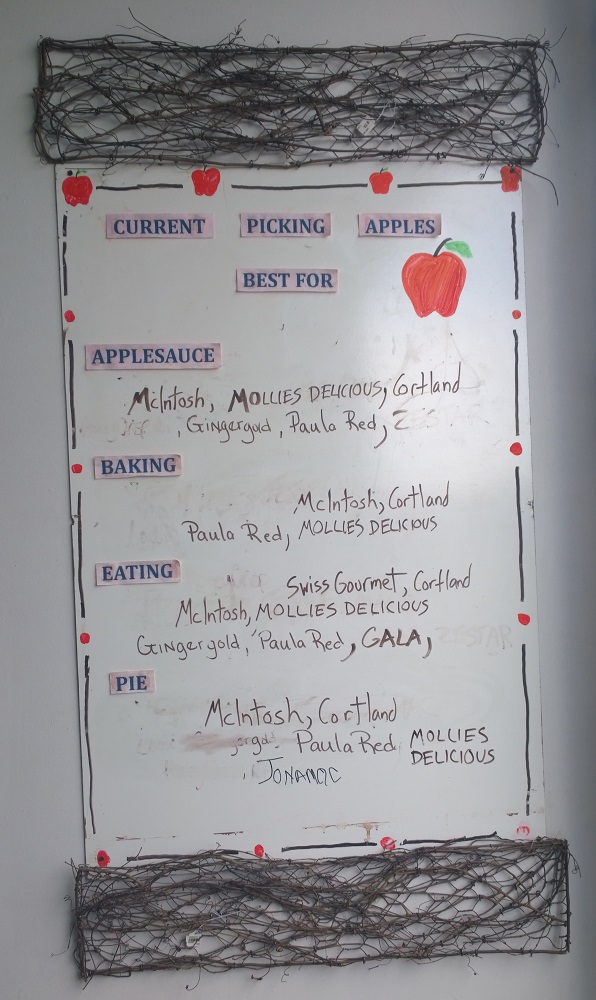 CURRENT PICKING APPLES
BEST FOR
APPLESAUCE
McIntosh, MOLLIES DELICIOUS, Cortland
, Gingergold, Paula Red,
BAKING
McIntosh, Cortland
Paula Red, MOLLIES DELICIOUS
EATING
Swiss Gourmet, Cortland
McIntosh, MOLLIES DELICIOUS
Gingergold, Paula Red, GALA, ZESTAR
PIE
McIntosh, Cortland
Paula Red MOLLIES
DELICIOUS
JONAMAC